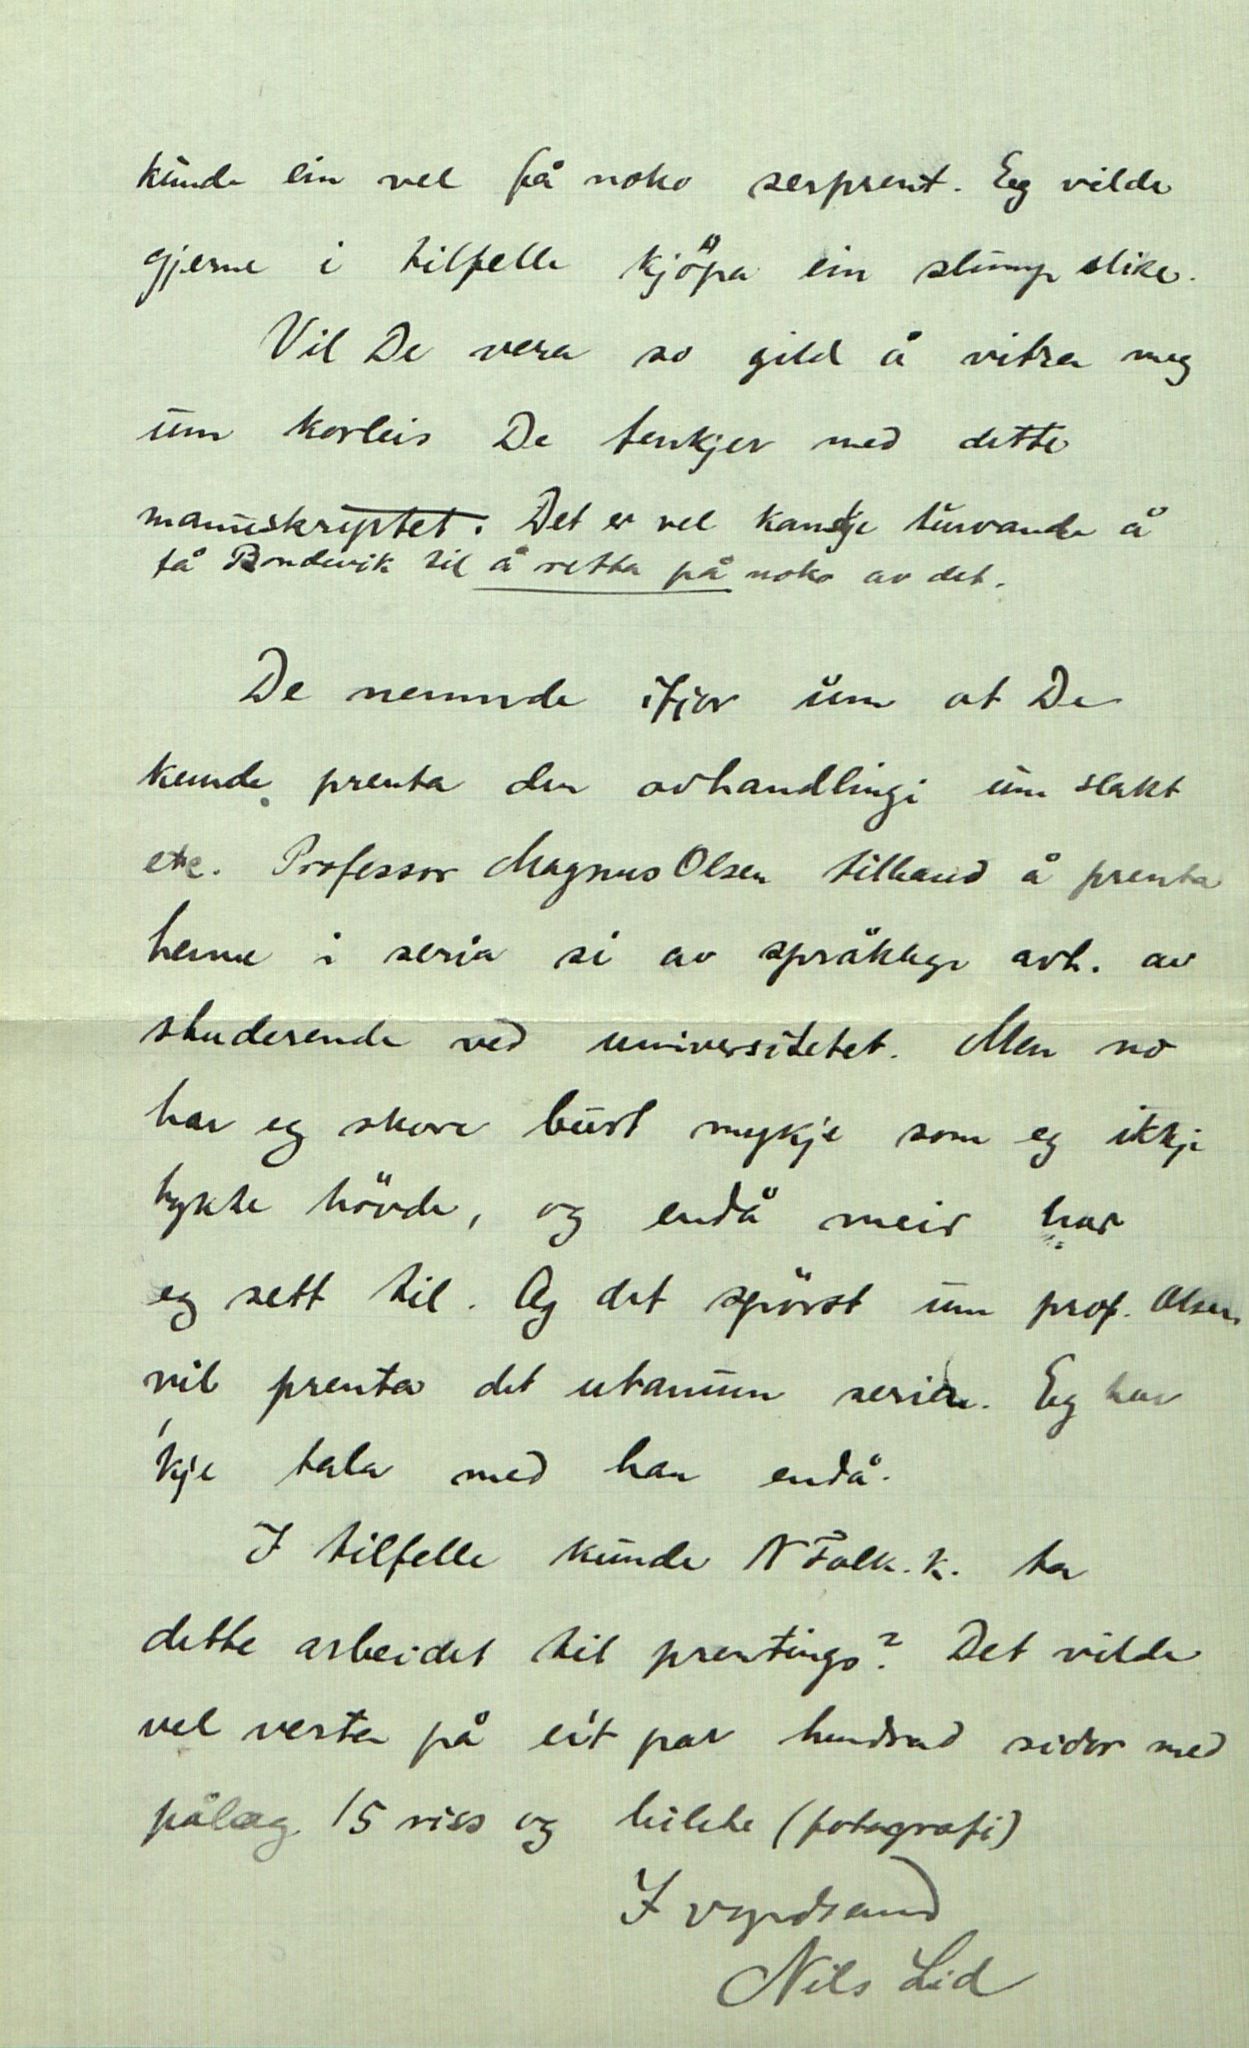 kunde ein vel få noko serprent. Eg vilde
gjerne i tilfelle kjöpa ein slump slike.
Vil De vera so gild å vitra meg
um korleis De tenkjer med dette
manuskriptet. Det er vel kanskje turvande å
få Bondevik til å retta på noko av det.
De nemnde ifjor um at De
kunde prenta den avhandlingi um slakt
etc. Professor Magnus Olsen tilbaud å prenta
henne i seria si av språklege avh. av
studerende ved universitetet. Men no
har eg skore burt mykje som eg ikkje
tykte hövde, og endå meir har
eg sett til. Og det spörst um prof. Olsen
vil prenta det utanum serien. Eg har
'kje tala med han endå.
I tilfelle kunde N Folk. k. ta
dette arbeidet til prentings? Det vilde
vel verta på eit par hundrad sidor med
pålag 15 riss og bilete (fotografi)
I vyrdsamd
Nils Lid